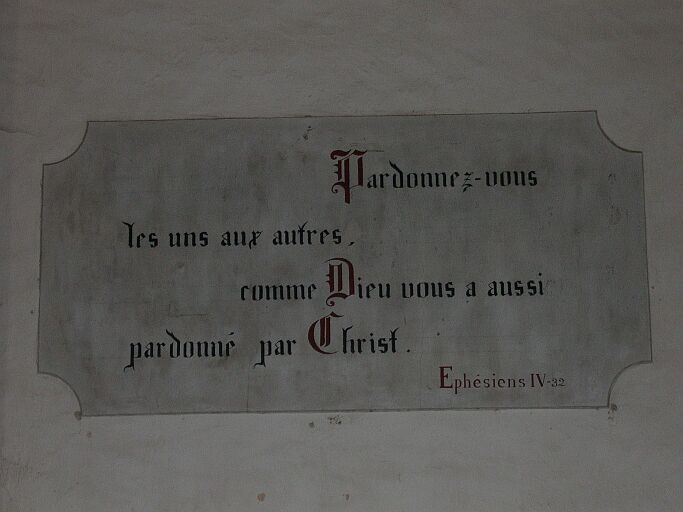 Pardonnez-vous
les uns aux autres,
comme Dieu vous a aussi
pardonné par Christ.
Ephésiens IV-32